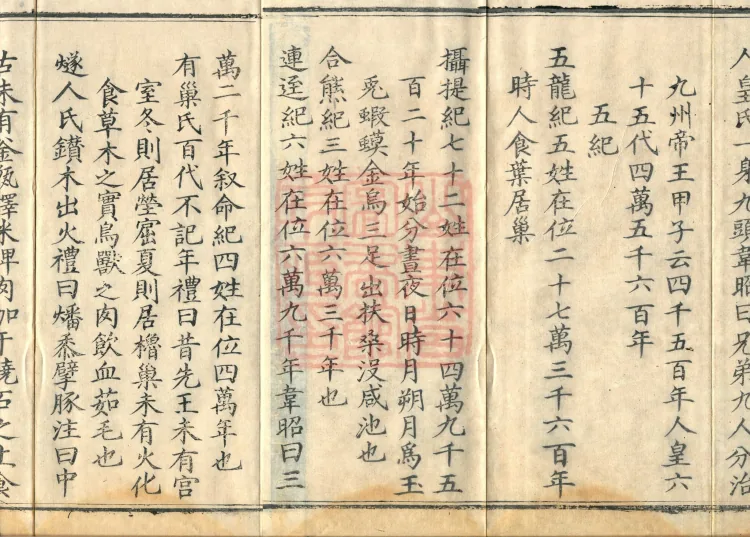 人皇氏一身九頭韋昭曰兄弟九人分治
九州帝王甲子云四千五百年人皇六
十五代四萬五千六百年
五紀
五龍紀五姓在位二十七萬三千六百年
時人食葉居巢
攝提紀七十二姓在位六十四萬九千五
百二十年始分晝夜日時月朔月爲玉
兎蝦蟆金烏三足出扶桒没咸池也
合熊紀三姓在位六萬三千年也
連逕紀六姓在位六萬九千年韋昭曰三
萬二千年叙命紀四姓在位四萬年也
有巢氏百代不記年禮曰昔先王未有宫
室冬則居塋窟夏則居櫓巢未有火化
食草木之實鳥獸之肉飲血茹毛也
燧人氏鑚木出火禮曰燔黍擘豚注曰中
古未有釜甑釋米捭肉加于燒石之上食